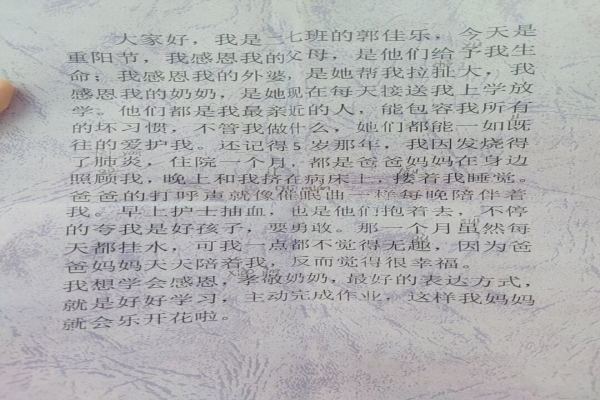 大家好，我是二七班的郭佳乐，今天是
重阳节，我感恩我的父母，是他们给了我生
命；我感恩我的外婆，是她帮我拉扯大，我
感恩我的奶奶，是她现在每天接送我上学放
学。他们都是我最亲近的人，能包容我所有
的坏习惯，不管我做什么，她们都能一如既
往的爱护我。还记得5岁那年，我因发烧得
了肺炎，住院一个月，都是爸爸妈妈在身边
照顾我，晚上和我挤在病床上，搂着我睡觉。
爸爸的打呼声就像催眠曲一样每晚陪伴着
我。早上护士抽血，也是他们抱着去，不停
的夸我是好孩子，要勇敢。那一个月虽然每
天都挂水，可我一点都不觉得无趣，因为爸
爸妈妈天天陪着我，反而觉得很幸福。
我想学会感恩，孝敬奶奶，最好的表达方式，
就是好好学习，主动完成作业，这样我妈妈
就会乐开花啦。